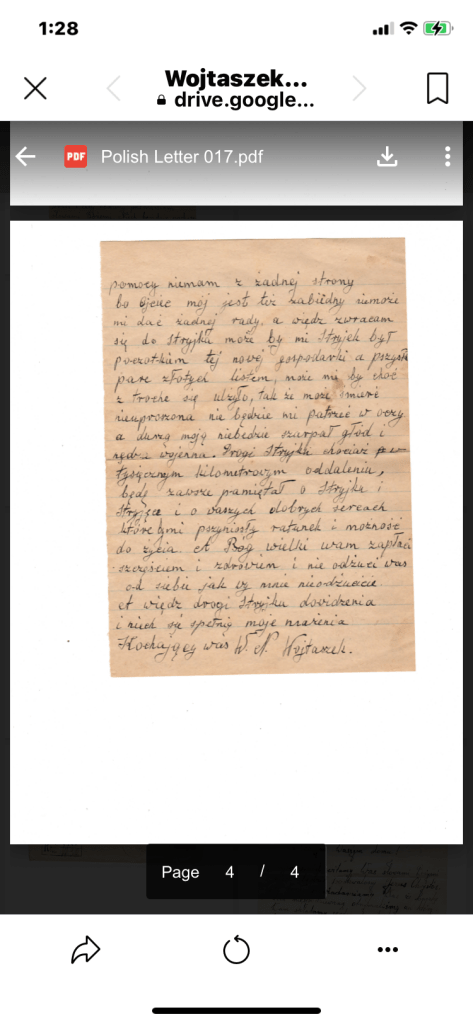 1:28
Wojtaszek...
drive.google...
PDF Polish Letter 017.pdf
pomocy niemam z żadnej strony
bo ojciec mój jest też zabiedny niemoże
mi dać żadnej rady, a więdz zwracam
się do stryjka może by mi stryjek był
początkiem tej nowej gospodarki a
pare złotych listem, może mi by choć
z troche się ulżyło, tak że może śmierć
nieuproszona nie będzie mi patrzeć w oczy
a duszą moją niebędzie szarpał głód i
nędza wojenna. Drogi Stryjku chociaż
tysięcznym kilometrowym oddaleniu,
będę zawsze pamiętał o Stryjku i
Stryjęce i o waszych dobrych sercach
które mi przyniosły ratunek i możność
do życia. A Bóg wielki wam zapłaci
szczęściem i zdrówiem i nie odżuci was
od siebie jak wy mnie nieodżucicie
A więdz drogi Stryjku dowidzenia
i niech są spełnią moje mażenia
Kochający was W. N. Wojtaszek.
Page 4 / 4